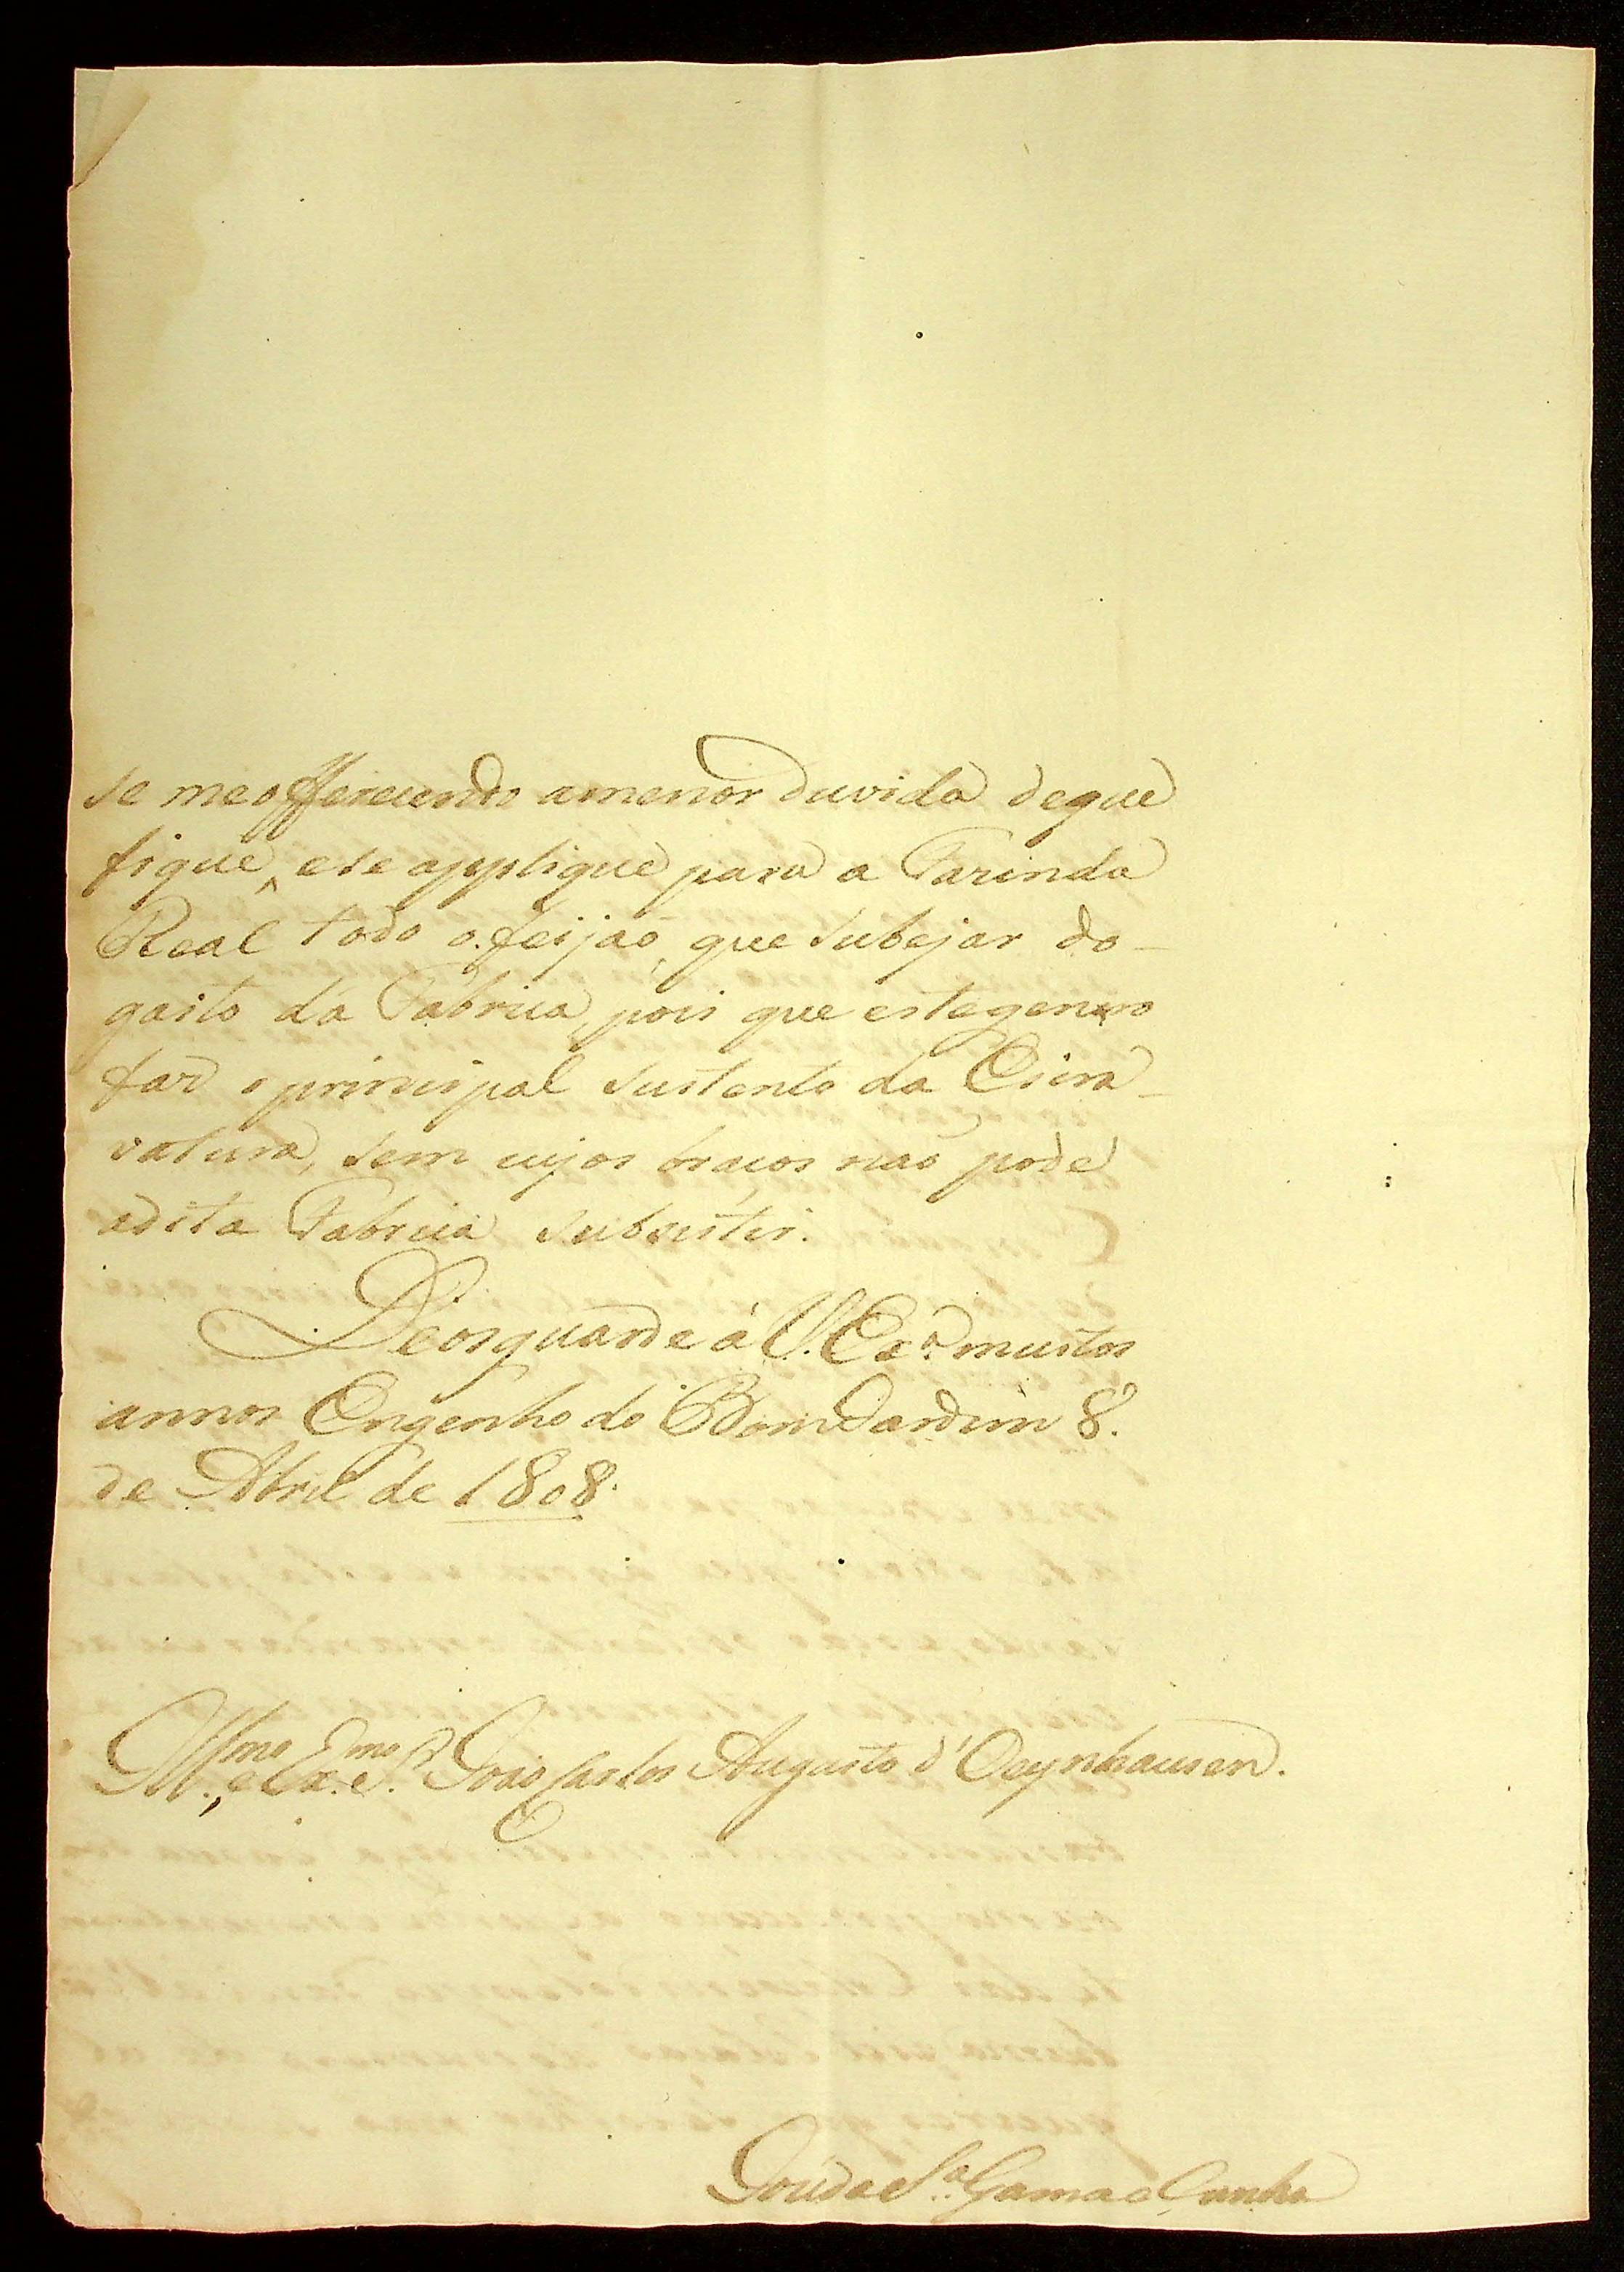 se me offerecendo amenor duvida deque
fique, ese applique para a Fazenda
Real todo o feijaõ, que subejar do
gasto da Fabrica, pois que estegenero
faz o principal sustento da Escra-
vatura, sem cujos braços naõ pode
adita Fabrica subsistir.
Deosguarde á V. Ex.ª muitos
annos Engenho do Bom Jardim 8.
de Abril de 1808.
Ill.mo e Ex.mo S.r Joaõ Carlos Augusto d'Oeynhausen.
Joze da S.ª Gama e Cunha